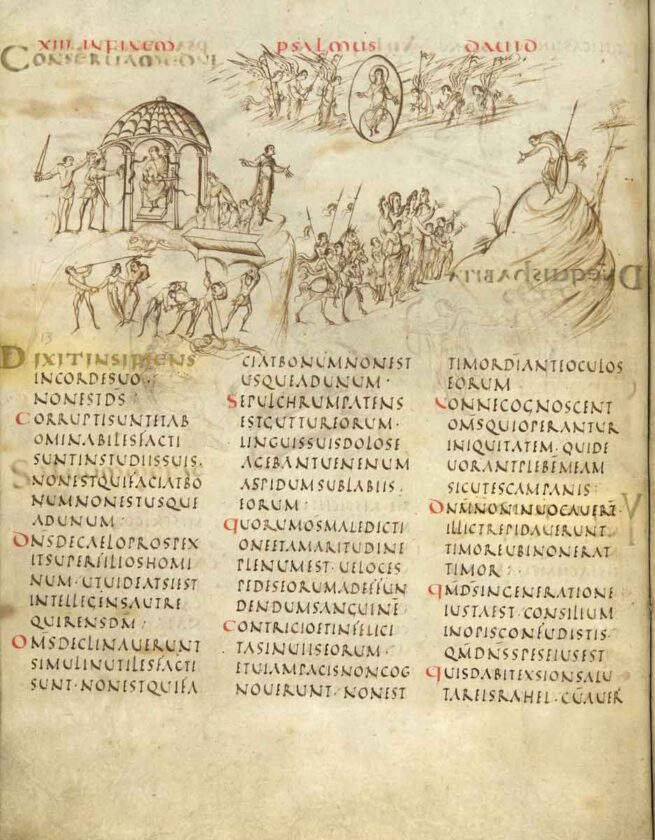 XIII INFINEM PSALMUS DAVID
DIXITINSIPIENS
INCORDESUO·
NONESTDS·
CORRUPTISUNTETAB
OMINABILESFACTI
SUNTINSTUDIISSUIS·
NONESTQUIFACIATBO
NUMNONESTUSQUE
ADUNUM·
DNSDECAELOPROSPEX
ITSUPERFILIOSHOMI
NUM·UTUIDEATSIEST
INTELLEGENSAUTRE
QUIRENSDM·
OMSDECLINAUERUNT
SIMULINUTILESFACTI
SUNT·NONESTQUIFA
CIATBONUMNONEST
USQUEADUNUM·
SEPULCHRUMPATENS
ESTGUTTUREORUM·
LINGUISSUISDOLOSE
AGEBANTUENENUM
ASPIDUMSUBLABIIS·
EORUM·
QUORUMOSMALEDICTI
ONEETAMARITUDINE
PLENUMEST·UELOCES
PEDESEORUMADEFFUN
DENDUMSANGUINE
CONTRICIOETINFELICI
TASINUIISEORUM·
ETUIAMPACISNONCOG
NOUERUNT·NONEST
TIMORDIANTEOCULOS
EORUM
NONNECOGNOSCENT
OMSQUIOPERANTUR
INIQUITATEM·QUIDE
UORANTPLEBEMEAM
SICUTESCAMPANIS·
DNMNONINUOCAUERT·
ILLICTREPIDAUERUNT
TIMOREUBINONERAT
TIMOR·
QMDSINGENERATIONE
IUSTAEST·CONSILIUM
INOPISCONFUDISTIS·
QMDNSSPESEIUSEST
QUISDABITEXSIONSALU
TAREISRAHEL·CUAUER